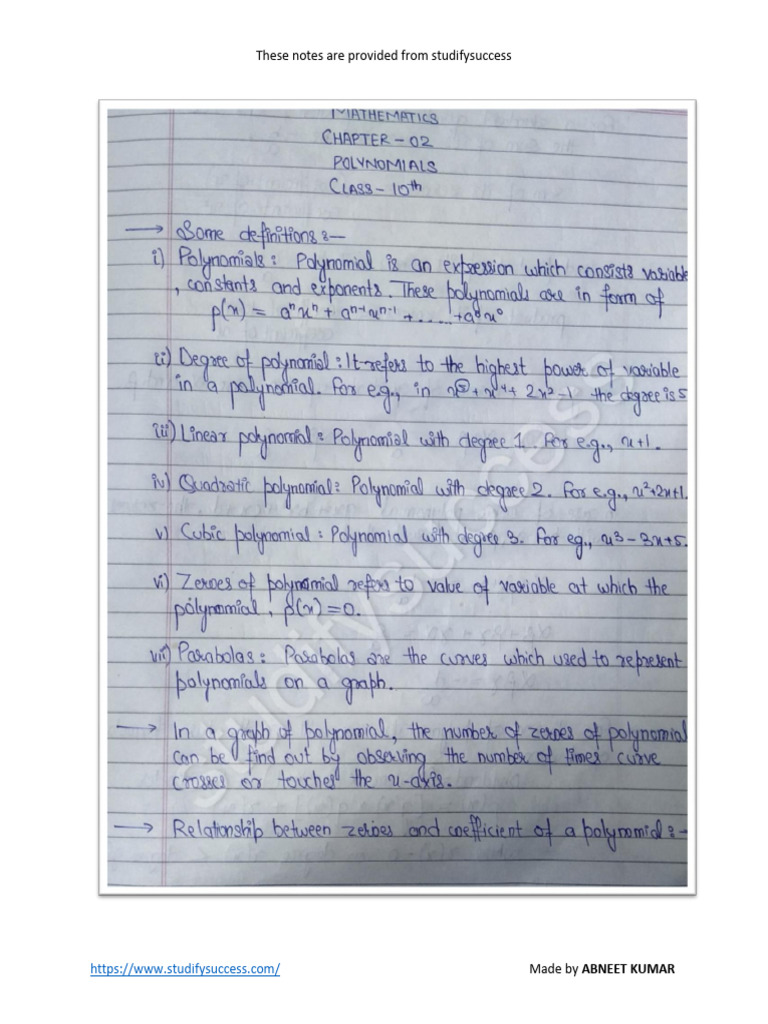 These notes are provided from studifysuccess
MATHEMATICS
CHAPTER-02
POLYNOMIALS
CLASS-10th
→ Some definitions:-
i) Polynomials: Polynomial is an expression which consists variable
, constants and exponents. These polynomials are in form of
p(x) = aⁿxⁿ + aⁿ⁻¹xⁿ⁻¹ + ...... + a⁰x⁰
ii) Degree of polynomial: It refers to the highest power of variable
in a polynomial. For e.g., in x⁵ + x⁴ + 2x² - 1 the degree is 5
iii) Linear polynomial: Polynomial with degree 1. For e.g., x+1.
iv) Quadratic polynomial: Polynomial with degree 2. For e.g., x²+2x+1.
v) Cubic polynomial: Polynomial with degree 3. For eg., x3-3x+5.
vi) Zeroes of polynomial refers to value of variable at which the
polynomial, p(x)=0.
vii) Parabolas: Parabolas are the curves which used to represent
polynomials on a graph.
→ In a graph of polynomial, the number of zeroes of polynomial
can be find out by observing the number of times curve
crosses or touches the x-axis.
→ Relationship between zeroes and coefficient of a polynomial:-
studifysuccess
https://www.studifysuccess.com/
Made by ABNEET KUMAR